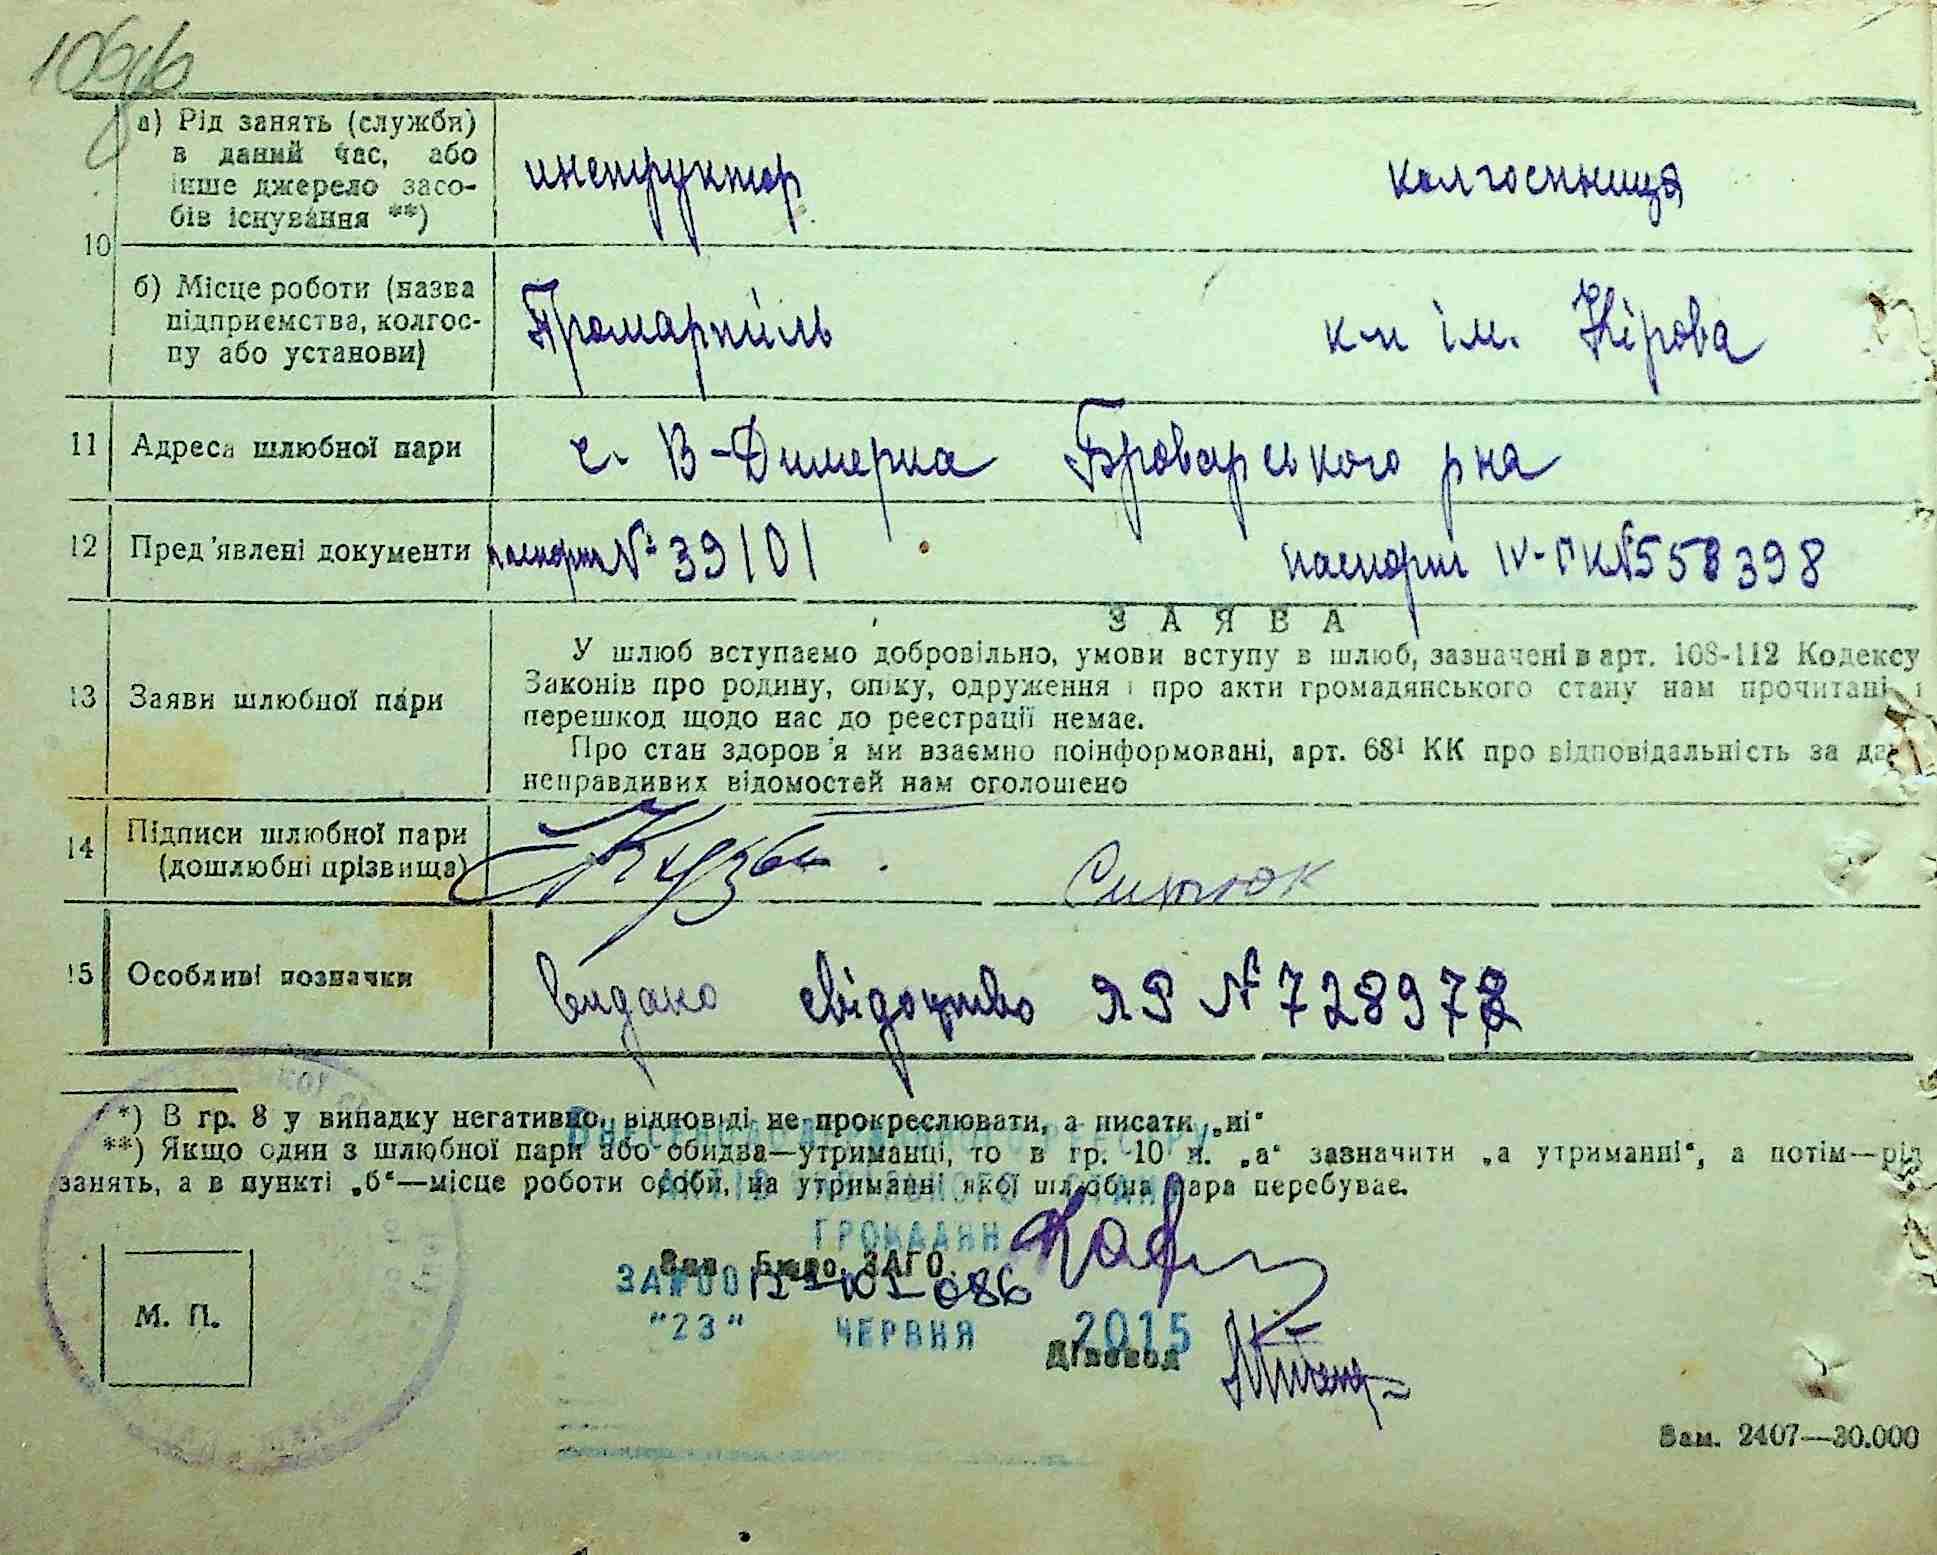 а) Рід занять (служби)
в даний час, або
інше джерело засо-
бів існування **)
инструктор
колгоспниця
10
б) Місце роботи (назва
підприємства, колгос-
пу або установи)
Промартіль
к-п ім. Кірова
11 Адреса шлюбної пари
с. В-Димерка Броварського р на
12 Пред'явлені документи
паспорт № 39101
паспорт IV-ПК №558398
13 Заяви шлюбної пари
ЗАЯВА
У шлюб вступаємо добровільно, умови вступу в шлюб, зазначені в арт. 108-112 Кодексу
Законів про родину, опіку, одруження і про акти громадянського стану нам прочитані і
перешкод щодо нас до реєстрації немає.
Про стан здоров'я ми взаємно поінформовані, арт. 68¹ КК про відповідальність за
неправдивих відомостей нам оголошено
14 Підписи шлюбної пари
(дошлюбні прізвища)
15 Особливі позначки
видано свідоцтво ЯР №
*) В гр. 8 у випадку негативно, відповіді не прокреслювати, а писати „ні“
**) Якщо один з шлюбної пари або обидва—утриманці, то в гр. 10 п. „а“ зазначити „а утриманні“, а потім—рід
занять, а в пункті „б“—місце роботи особи, на утриманні якої шлюбна пара перебуває.
ГРОМАДЯН
Зав. Бюро ЗАГС
"23" ЧЕРВНЯ 2015
М. П.
Діловод
Зам. 2407—30.000